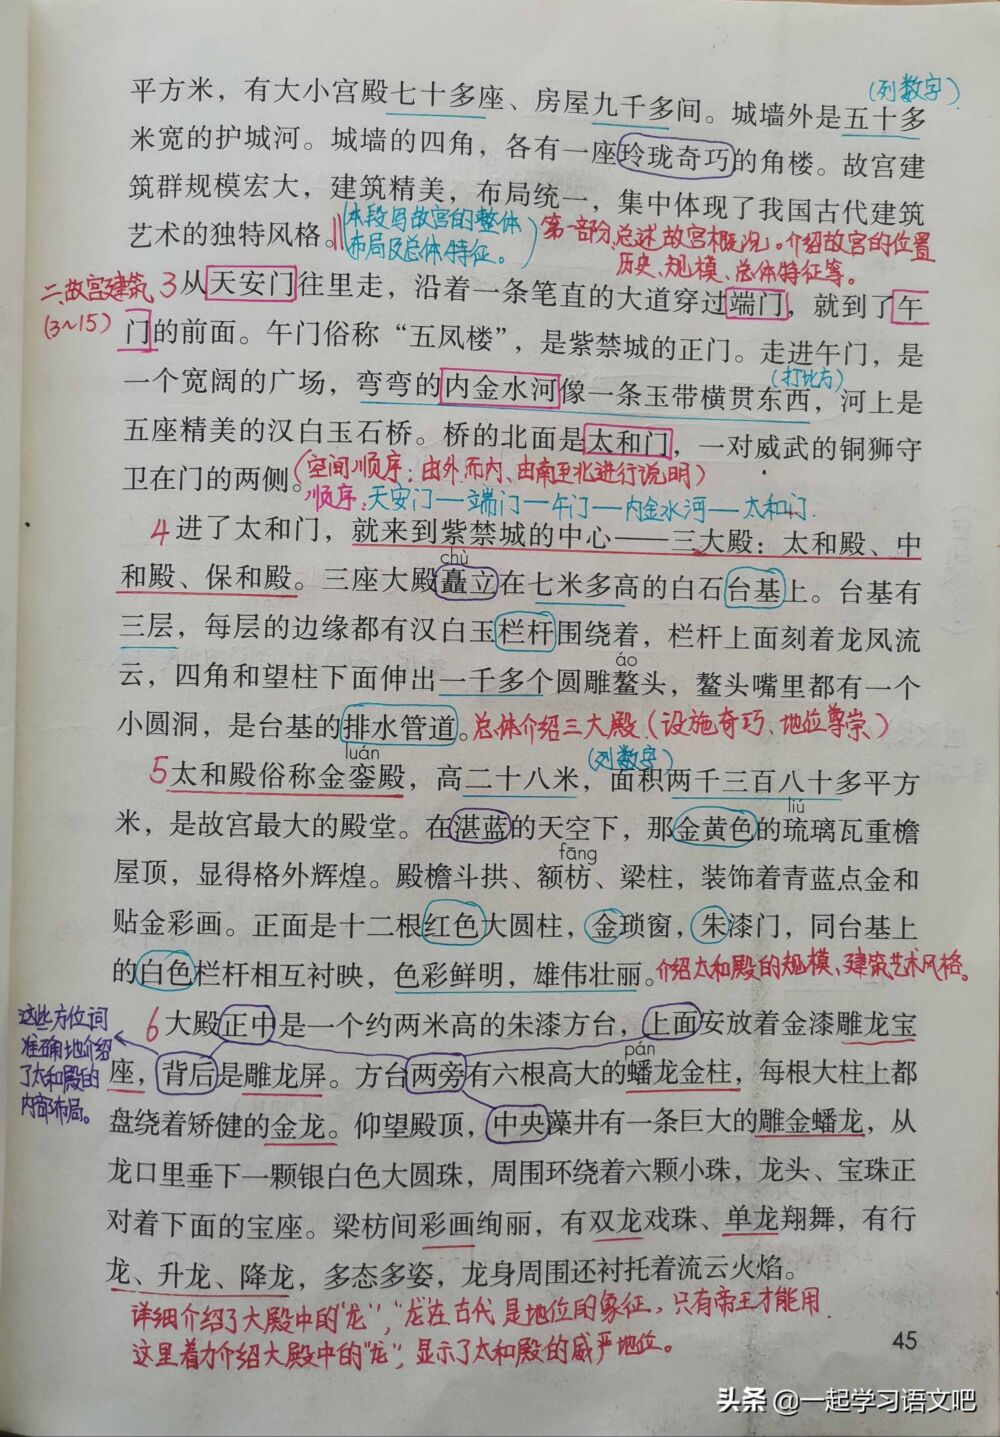 (列数字)
平方米，有大小宫殿七十多座、房屋九千多间。城墙外是五十多
米宽的护城河。城墙的四角，各有一座玲珑奇巧的角楼。故宫建
筑群规模宏大，建筑精美，布局统一，集中体现了我国古代建筑
艺术的独特风格。
(本段写故宫的整体
布局及总体特征。)
第一部分，总述故宫概况。介绍故宫的位置
历史、规模、总体特征等。
二、故宫建筑
(3~15)
3 从天安门往里走，沿着一条笔直的大道穿过端门，就到了午
门的前面。午门俗称“五凤楼”，是紫禁城的正门。走进午门，是
(打比方)
一个宽阔的广场，弯弯的内金水河像一条玉带横贯东西，河上是
五座精美的汉白玉石桥。桥的北面是太和门，一对威武的铜狮守
卫在门的两侧。(空间顺序：由外而内、由南至北进行说明)
顺序：天安门—端门—午门—内金水河—太和门.
4 进了太和门，就来到紫禁城的中心——三大殿：太和殿、中
chù
和殿、保和殿。三座大殿矗立在七米多高的白石台基上。台基有
三层，每层的边缘都有汉白玉栏杆围绕着，栏杆上面刻着龙凤流
áo
云，四角和望柱下面伸出一千多个圆雕鳌头，鳌头嘴里都有一个
小圆洞，是台基的排水管道。总体介绍三大殿(设施奇巧、地位尊崇)
luán
(列数字)
5 太和殿俗称金銮殿，高二十八米，面积两千三百八十多平方
liú
米，是故宫最大的殿堂。在湛蓝的天空下，那金黄色的琉璃瓦重檐
fāng
屋顶，显得格外辉煌。殿檐斗拱、额枋、梁柱，装饰着青蓝点金和
贴金彩画。正面是十二根红色大圆柱，金琐窗，朱漆门，同台基上
的白色栏杆相互衬映，色彩鲜明，雄伟壮丽。介绍太和殿的规模、建筑艺术风格。
这些方位词
准确地介绍
了太和殿的
内部布局。
6 大殿正中是一个约两米高的朱漆方台，上面安放着金漆雕龙宝
pán
座，背后是雕龙屏。方台两旁有六根高大的蟠龙金柱，每根大柱上都
盘绕着矫健的金龙。仰望殿顶，中央藻井有一条巨大的雕金蟠龙，从
龙口里垂下一颗银白色大圆珠，周围环绕着六颗小珠，龙头、宝珠正
对着下面的宝座。梁枋间彩画绚丽，有双龙戏珠、单龙翔舞，有行
龙、升龙、降龙，多态多姿，龙身周围还衬托着流云火焰。
详细介绍了大殿中的“龙”，“龙”在古代是地位的象征，只有帝王才能用.
这里着力介绍大殿中的“龙”，显示了太和殿的威严地位。
45
头条 @一起学习语文吧